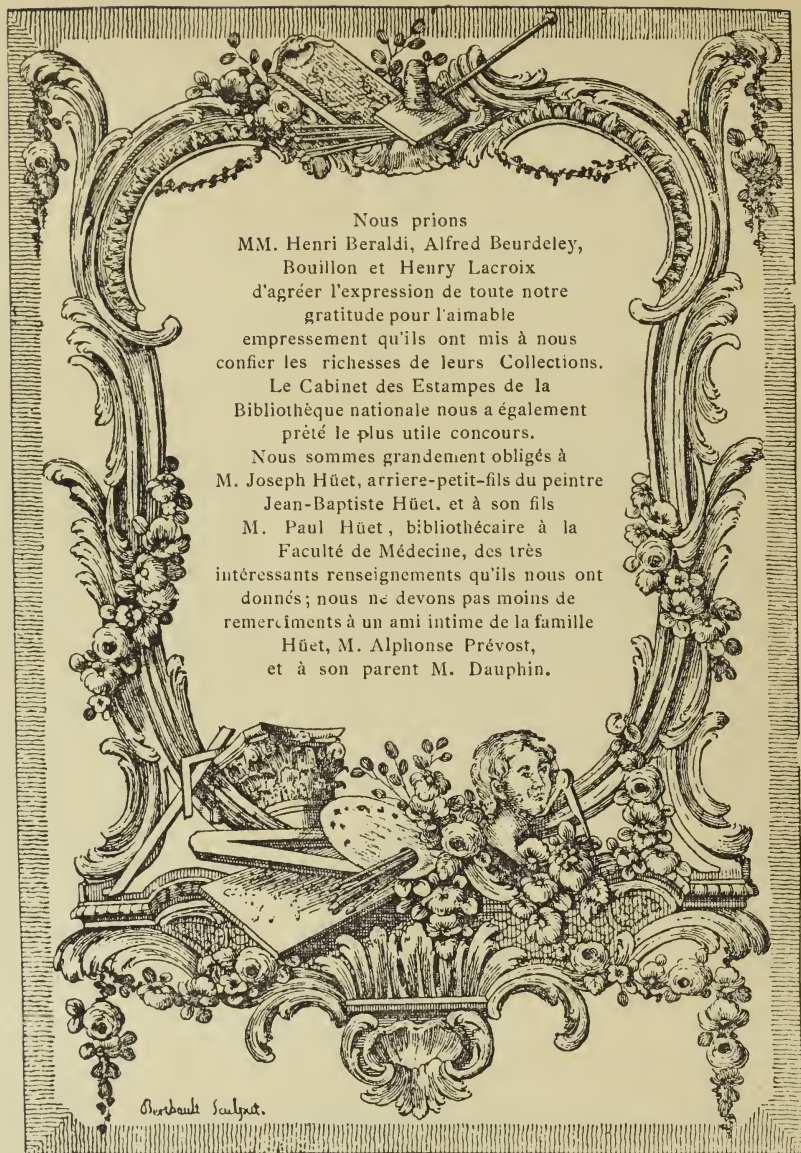 Nous prions
MM. Henri Beraldi, Alfred Beurdeley,
Bouillon et Henry Lacroix
d'agréer l'expression de toute notre
gratitude pour l'aimable
empressement qu'ils ont mis à nous
confier les richesses de leurs Collections.
Le Cabinet des Estampes de la
Bibliothèque nationale nous a également
prêté le plus utile concours.
Nous sommes grandement obligés à
M. Joseph Hüet, arriere-petit-fils du peintre
Jean-Baptiste Hüet. et à son fils
M. Paul Hüet, bibliothécaire à la
Faculté de Médecine, des très
intéressants renseignements qu'ils nous ont
donnés; nous ne devons pas moins de
remercîments à un ami intime de la famille
Hüet, M. Alphonse Prévost,
et à son parent M. Dauphin.
Berthault Sculpsit.